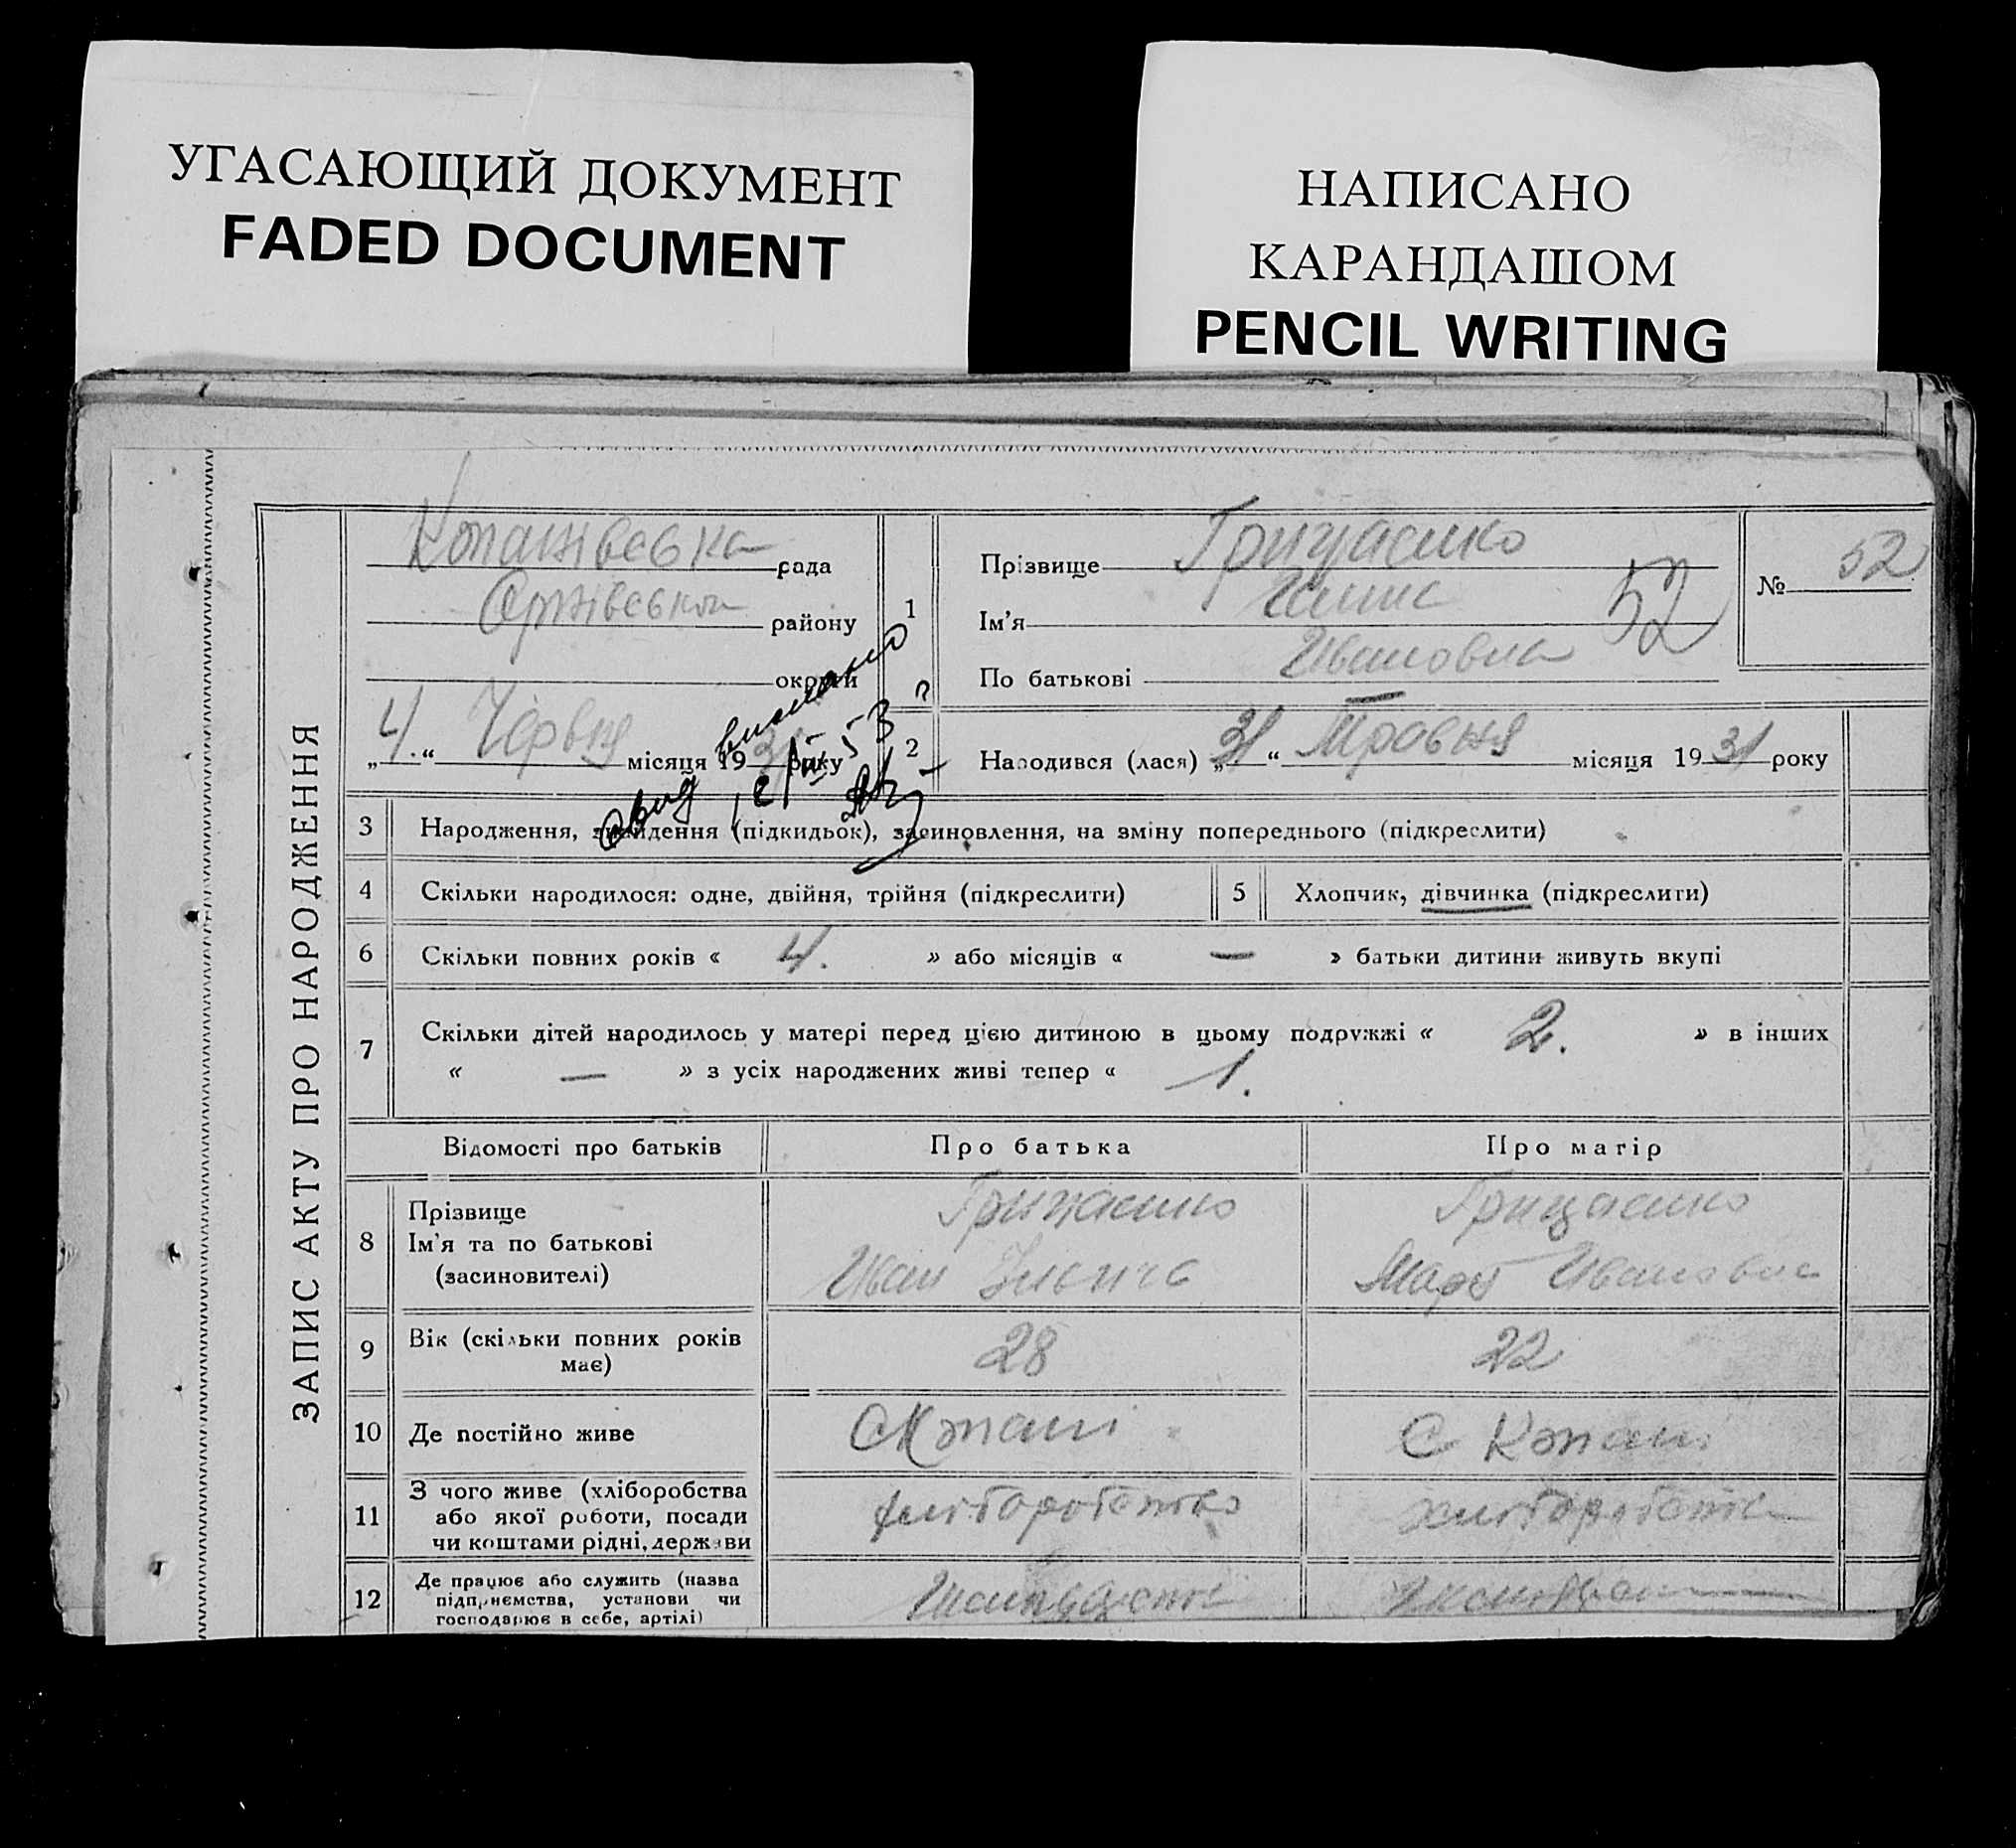 УГАСАЮЩИЙ ДОКУМЕНТ
FADED DOCUMENT
НАПИСАНО
КАРАНДАШОМ
PENCIL WRITING
ЗАПИС АКТУ ПРО НАРОДЖЕННЯ
Копанівська рада
Оржівськ району
округи
„4.“ Червня місяця 1931 року
1
Прізвище Грицаенко
Ім'я
По батькові Ивановна
52
№ 52
2 Народився (лася) „31“ Травня місяця 1931 року
свид выслано
3 Народження, знайдення (підкидьок), засиновлення, на зміну попереднього (підкреслити)
4 Скільки народилося: одне, двійня, трійня (підкреслити)
5 Хлопчик, дівчинка (підкреслити)
6 Скільки повних років « 4. » або місяців « — » батьки дитини живуть вкупі
7 Скільки дітей народилось у матері перед цією дитиною в цьому подружжі « 2. » в інших
« — » з усіх народжених живі тепер « 1.
Відомості про батьків Про батька Про матір
8 Прізвище
Ім'я та по батькові
(засиновителі)
Грицаенко
Иван
Грицаенко
Ивановна
9 Вік (скільки повних років
має)
28
22
10 Де постійно живе
С Копани
С Копани
11 З чого живе (хліборобства
або якої роботи, посади
чи коштами рідні, держави
хлібороботво
12 Де працює або служить (назва
підприємства, установи чи
господарює в себе, артілі)